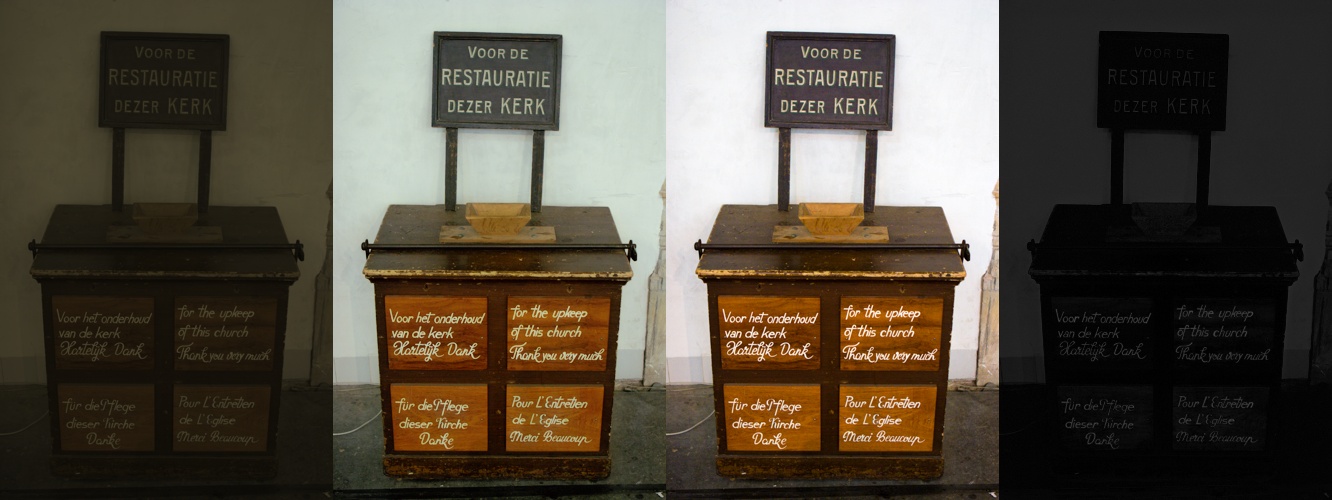 VOOR DE
RESTAURATIE
DEZER KERK
Voor het onderhoud
van de kerk
Hartelijk Dank
for the upkeep
of this church
Thank you very much
für die Pflege
dieser Kirche
Danke
Pour L'Entretien
de L'Eglise
Merci Beaucoup
VOOR DE
RESTAURATIE
DEZER KERK
Voor het onderhoud
van de kerk
Hartelijk Dank
for the upkeep
of this church
Thank you very much
für die Pflege
dieser Kirche
Danke
Pour L'Entretien
de L'Eglise
Merci Beaucoup
VOOR DE
RESTAURATIE
DEZER KERK
Voor het onderhoud
van de kerk
Hartelijk Dank
for the upkeep
of this church
Thank you very much
für die Pflege
dieser Kirche
Danke
Pour L'Entretien
de L'Eglise
Merci Beaucoup
VOOR DE
RESTAURATIE
DEZER KERK
Voor het onderhoud
van de kerk
Hartelijk Dank
for the upkeep
of this church
Thank you very much
für die Pflege
dieser Kirche
Danke
Pour L'Entretien
de L'Eglise
Merci Beaucoup